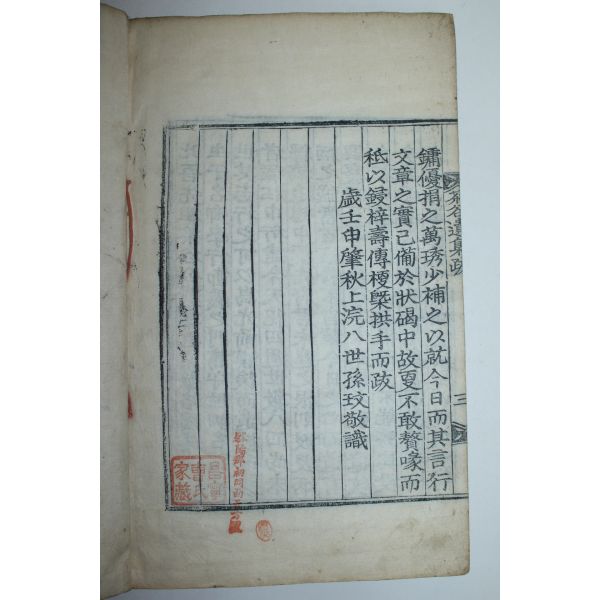 遺集跋
三
鏞優捐之萬琇少補之以就今日而其言行
文章之實已備於狀碣中故更不敢贅喙而
秪以鋟梓壽傳梗槩拱手而跋
歲壬申肇秋上浣八世孫玟敬識
昌寧曺氏家藏